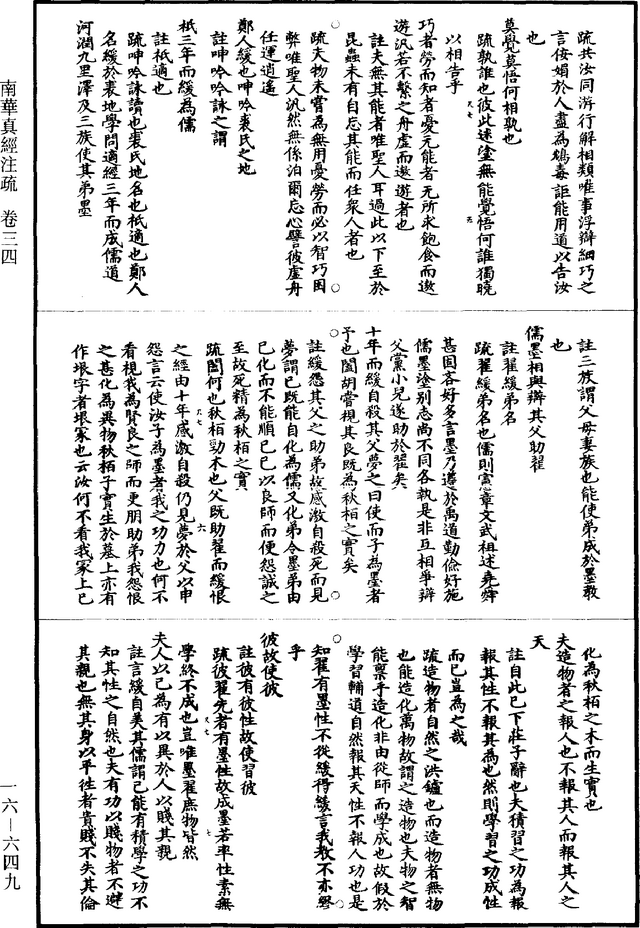 南華真經注疏　卷三四
疏共汝同遊行解相類唯事浮辯細巧之
言佞媚於人盡為鴆毒詎能用道以告汝
也
莫覺莫悟何相孰也
疏孰誰也彼此迷塗無能覺悟何誰獨曉
以相告乎
巧者勞而知者憂无能者无所求飽食而遨
遊汎若不繫之舟虛而遨遊者也
註夫無其能者唯聖人耳過此以下至於
昆蟲未有自忘其能而任衆人者也
疏夫物未嘗為無用憂勞而必以智巧困
弊唯聖人汎然無係泊爾忘心譬彼虛舟
任運逍遙
鄭人緩也呻吟裘氏之地
註呻吟吟詠之謂
祇三年而緩為儒
註祇適也
疏呻吟詠讀也裘氏地名也祇適也鄭人
名緩於裘地學問適經三年而成儒道
河潤九里澤及三族使其弟墨
註三族謂父母妻族也能使弟成於墨教
也
儒墨相與辯其父助翟
註翟緩弟名
疏翟緩弟名也儒則憲章文武祖述堯舜
甚固吝好多言墨乃遵於禹道勤儉好施
儒墨塗別志尚不同各執是非互相爭辯
父黨小兒遂助於翟矣
十年而緩自殺其父夢之曰使而子為墨者
予也闔胡嘗視其良既為秋栢之實矣
註緩怨其父之助弟故感激自殺死而見
夢謂己既能自化為儒又化弟令墨弟由
己化而不能順己己以良師而便怨誠之
至故死精為秋栢之實
疏闔何也秋栢勁木也父既助翟而緩恨
之經由十年感激自殺仍見夢於父以申
怨言云使汝子為墨者我之功力也何不
看視我為賢良之師而更朋助弟我怨恨
之甚化為異物秋栢子實生於墓上亦有
作埌字者埌冢也云汝何不看我冢上已
化為秋栢之木而生實也
夫造物者之報人也不報其人而報其人之
天
註自此已下莊子辭也夫積習之功為報
報其性不報其為也然則學習之功成性
而已豈為之哉
疏造物者自然之洪鑪也而造物者無物
也能造化萬物故謂之造物也夫物之智
能稟乎造化非由從師而學成也故假於
學習輔道自然報其天性不報人功也是
知翟有墨性不從緩得緩言我教不亦繆
乎
彼故使彼
註彼有彼性故使習彼
疏彼翟先者有墨性故成墨若率性素無
學終不成也豈唯墨翟庶物皆然
夫人以己為有以異於人以賤其親
註言緩自美其儒謂己能有積學之功不
知其性之自然也夫有功以賤物者不避
其親也無其身以平往者貴賤不失其倫
一六—六四九